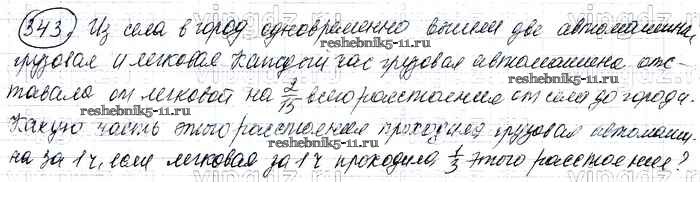 343. Из села в город одновременно вышли две автомашины,
грузовая и легковая. Каждый час грузовая автомашина отс-
тавала от легковой на 2/15 всего расстояния от села до города.
Какую часть этого расстояния проходила грузовая автомаши-
на за 1 ч, если легковая за 1 ч проходила 1/3 этого расстояния?
reshebnik5-11.ru
reshebnik5-11.ru
reshebnik5-11.ru
reshebnik5-11.ru